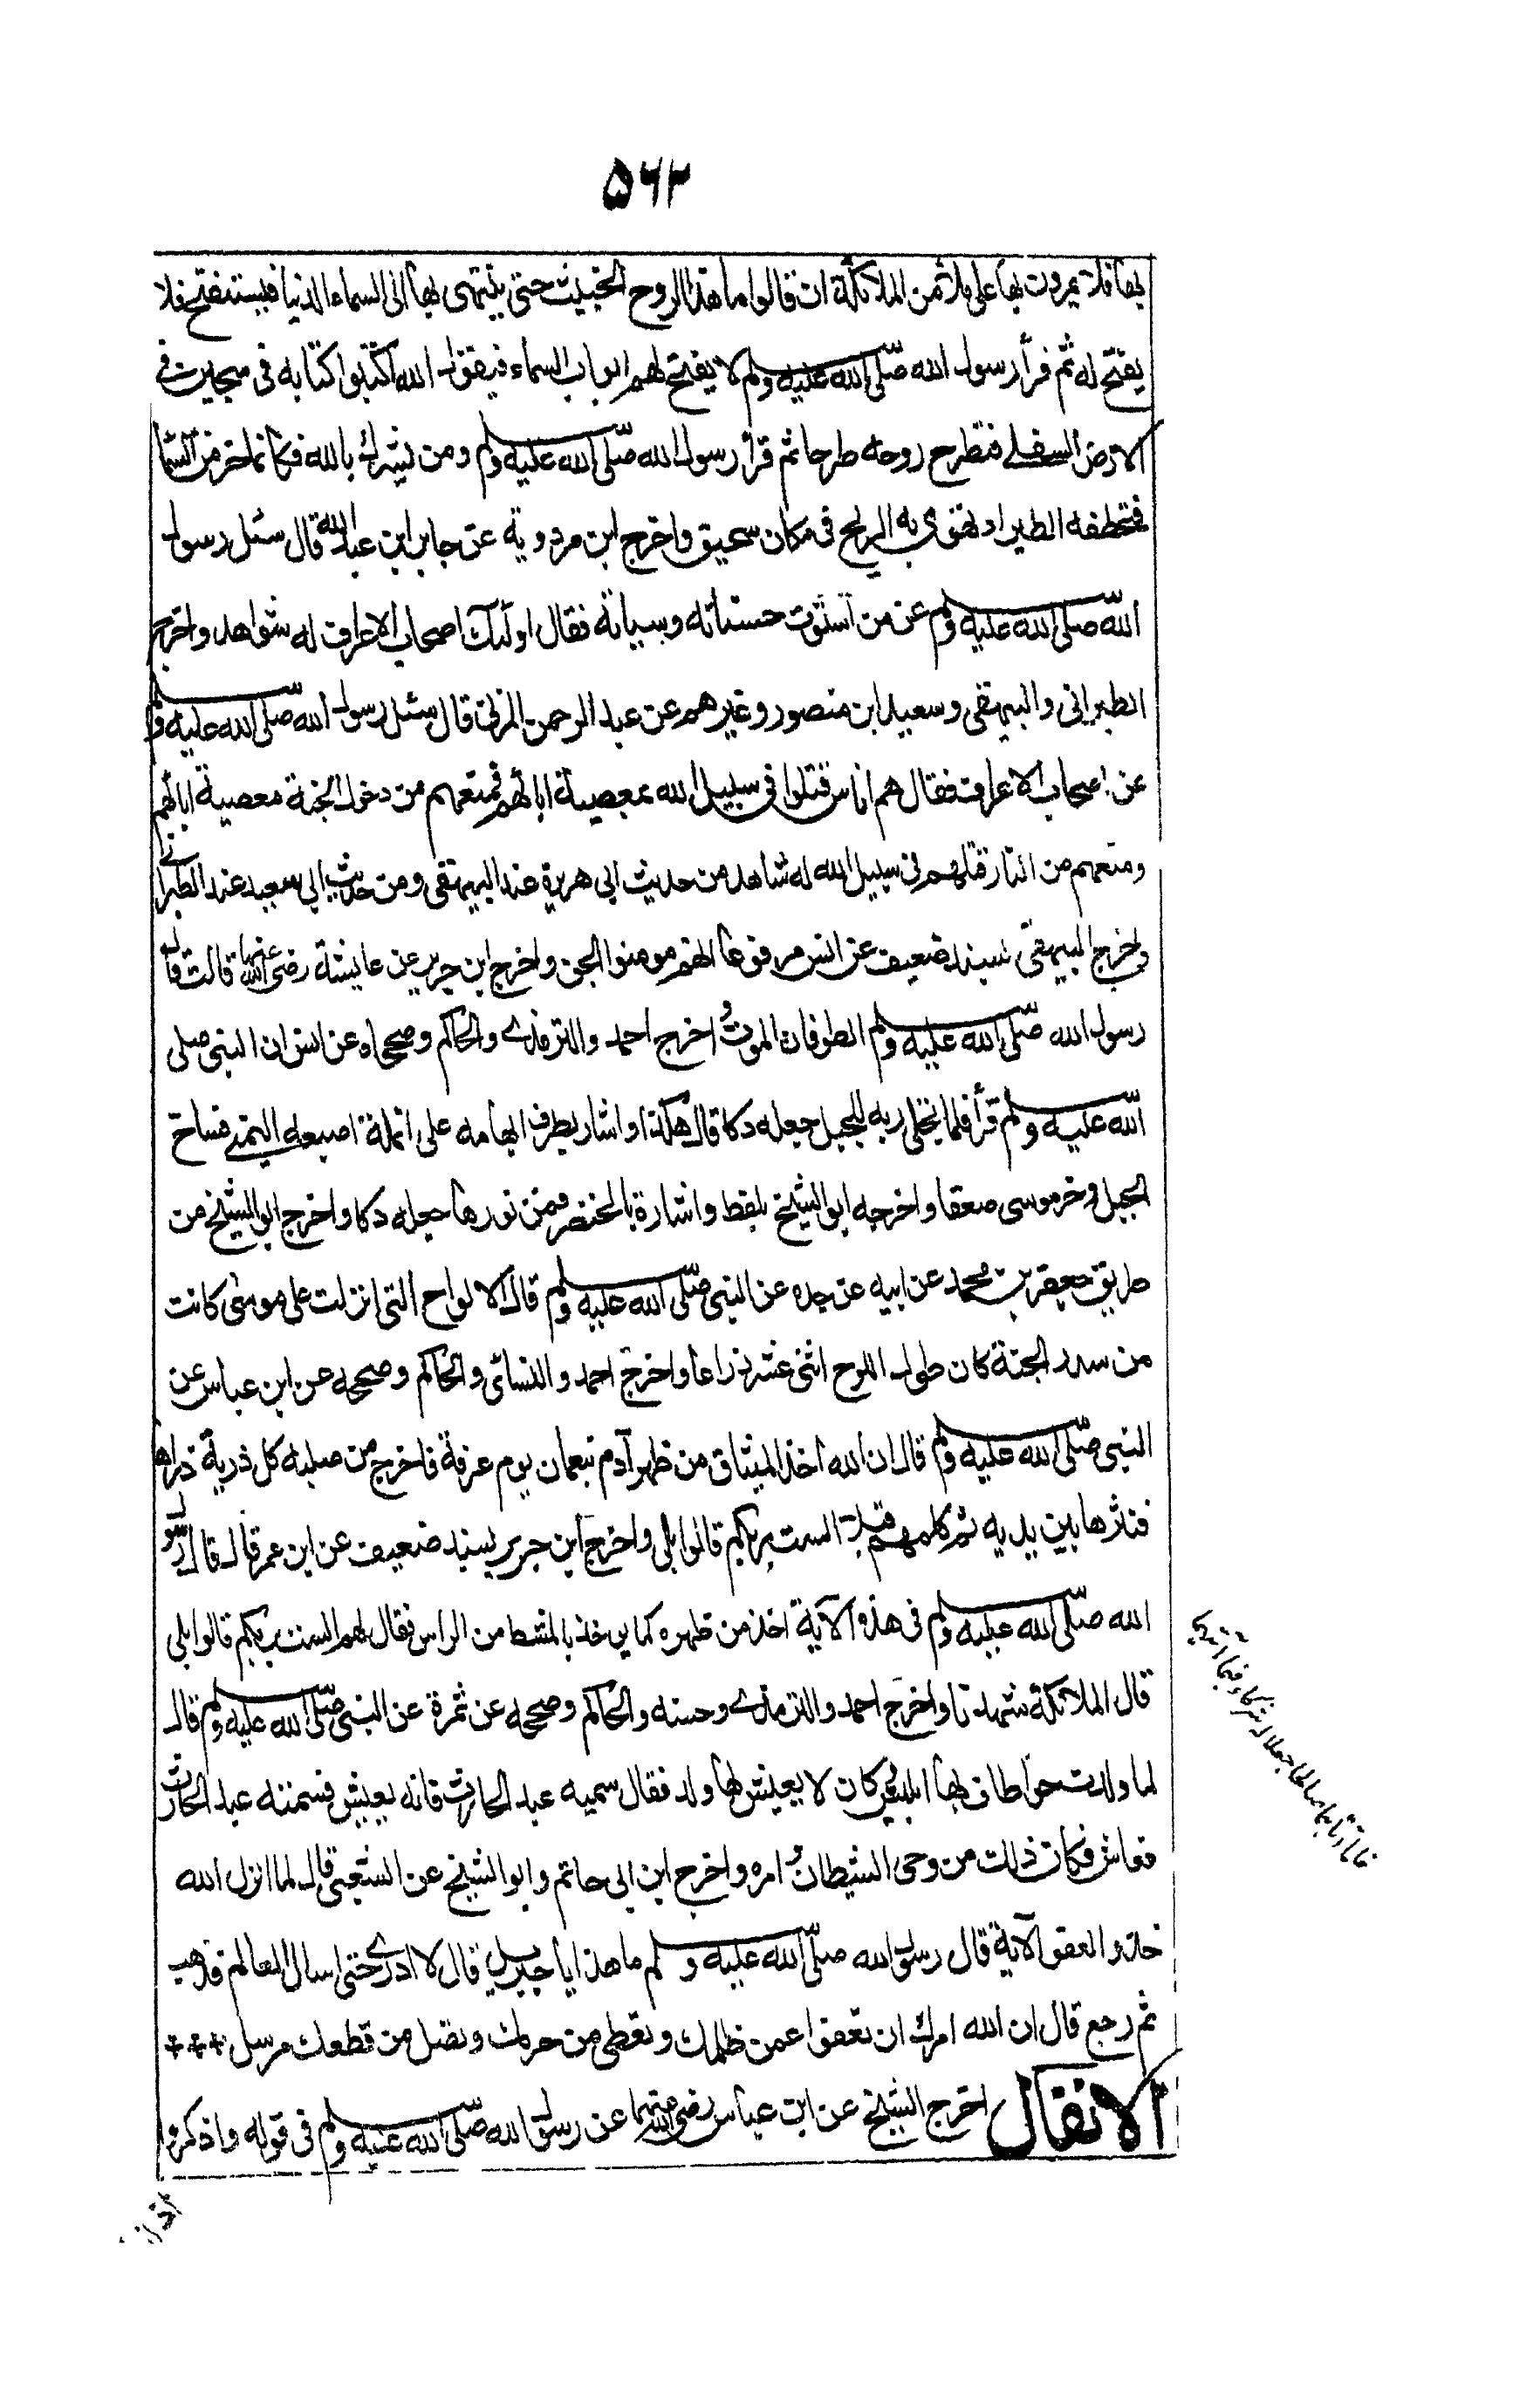 ۵۶۲
بها فلا يمرون بها على ملأ من الملائكة ان قالوا ما هذا الروح الخبيث حتى ينتهى بها الى السماء الدنيا فيستفتح فلا
يفتح له ثم قرأ رسول الله صلّى الله عليه وسلم لا يفتح لهم ابواب السماء فيقول الله اكتبوا كتابه فى سجين فى
الارض السفلى فتطرح روحه طرحا ثم قرأ رسول الله صلّى الله عليه وسلم ومن يشرك بالله فكانما خر من السما
فتخطفه الطير او تهوى به الريح فى مكان سحيق واخرج ابن مردوية عن جابر ابن عبد الله قال سئل رسول
الله صلى الله عليه وسلم عن من آستوت حسناته وسياته فقال اولئك اصحاب الاعراف له شواهد واخرج
الطبرانى والبيهقى وسعيد ابن منصور وغيرهم عن عبد الرحمن المزنى قال سئل رسول الله صلّى الله عليه وسلم
عن اصحاب الاعراف فقال هم اناس قتلوا فى سبيل الله بمعصية ابائهم فمنعهم من دخول الجنة معصية ابائهم
ومنعهم من النار قتلهم فى سبيل الله له شاهد من حديث ابى هريرة عند البيهقى ومن حديث ابى سعيد عند الطبرانى
واخرج البيهقى بسند ضعيف عن انس مرفوعا انهم مومنوا الجن واخرج ابن جرير عن عايشة رضى الله عنها قالت قال
رسول الله صلّى الله عليه وسلم الطوفان الموت و اخرج احمد والترمذى والحاكم وصححاه عن انس ان النبى صلى
الله عليه وسلم قرأ فلما تجلى ربه للجبل جعله دكا قال هكذا واشار بطرف ابهامه على انملة اصبعه اليمنى فساخ
الجبل وخر موسى صعقا واخرجه ابو الشيخ بلفظ واشارة بالخنصر فمن نورها جعله دكا واخرج ابو الشيخ من
طريق جعفر بن محمد عن ابيه عن جده عن النبى صلّى الله عليه وسلم قال الالواح التى انزلت على موسى كانت
من سدر الجنة كان طول اللوح اثنى عشر ذراعا واخرج احمد والنسائى والحاكم وصححه عن ابن عباس عن
النبى صلّى الله عليه وسلم قال ان الله اخذ الميثاق من ظهر آدم بنعمان يوم عرفة فاخرج من صلبه كل ذرية ذراها
فنثرها بين يديه ثم كلمهم قبلا الست بربكم قالوا بلى واخرج ابن جرير بسند ضعيف عن ابن عمر قال قال رسول
الله صلّى الله عليه وسلم فى هذه الآية اخذ من ظهره كما يوخذ بالمشط من الراس فقال لهم الست بربكم قالوا بلى
قال الملائكة شهدنا واخرج احمد والترمذى وحسنه والحاكم وصححه عن ثمرة عن النبى صلّى الله عليه وسلم قال
لما ولدت حوا طاف بها ابليس و كان لا يعيش لها ولد فقال سميه عبد الحارث فانه يعيش فسمته عبد الحارث
فعاش فكان ذلك من وحى الشيطان و امره واخرج ابن ابى حاتم وابو الشيخ عن الشعبى قال لما انزل الله
خذ العفو الآية قال رسول الله صلّى الله عليه وسلم ما هذا يا جبريل قال لا ادرى حتى اسال العالم فذهب
ثم رجع قال ان الله امرك ان تعفوا عمن ظلمك وتعطى من حرمك وتصل من قطعك مرسل
الانفال اخرج الشيخ عن ابن عباس رضى الله عنهما عن رسول الله صلّى الله عليه وسلم فى قوله واذكروا
فلما آتاهما صالحا جعلا له شركاء فيما آتيهما